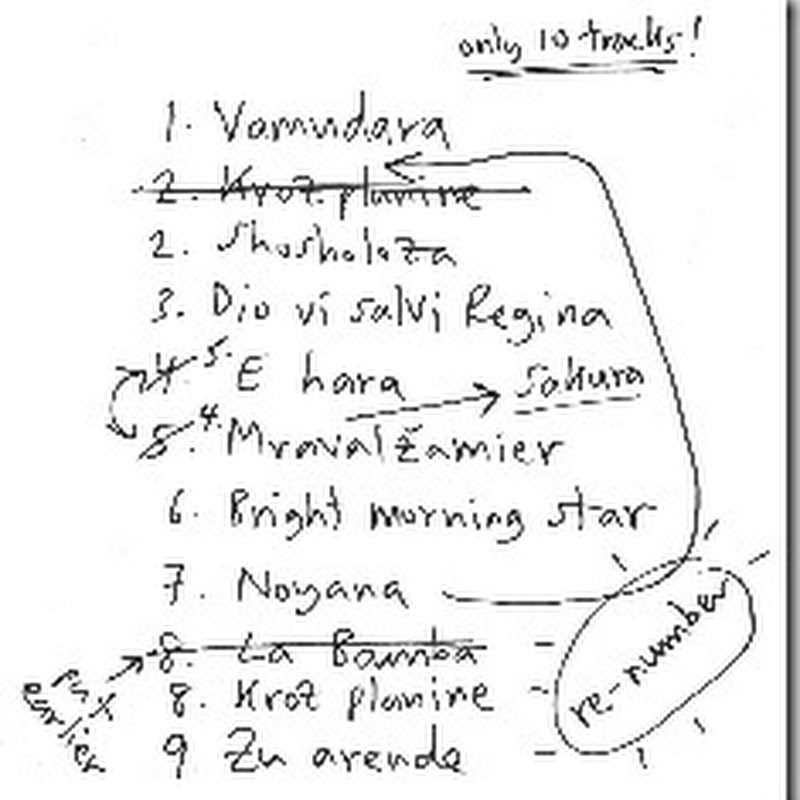 only 10 tracks!
1. Vamudara
2. Kroz planine
2. Shosholoza
3. Dio vi salvi Regina
4. 5. E hara → Sakura
5. 4. Mravalžamier
6. Bright morning star
7. Noyana
8. La Bamba
8. Kroz planine
9 Zu arende
put earlier
re-number